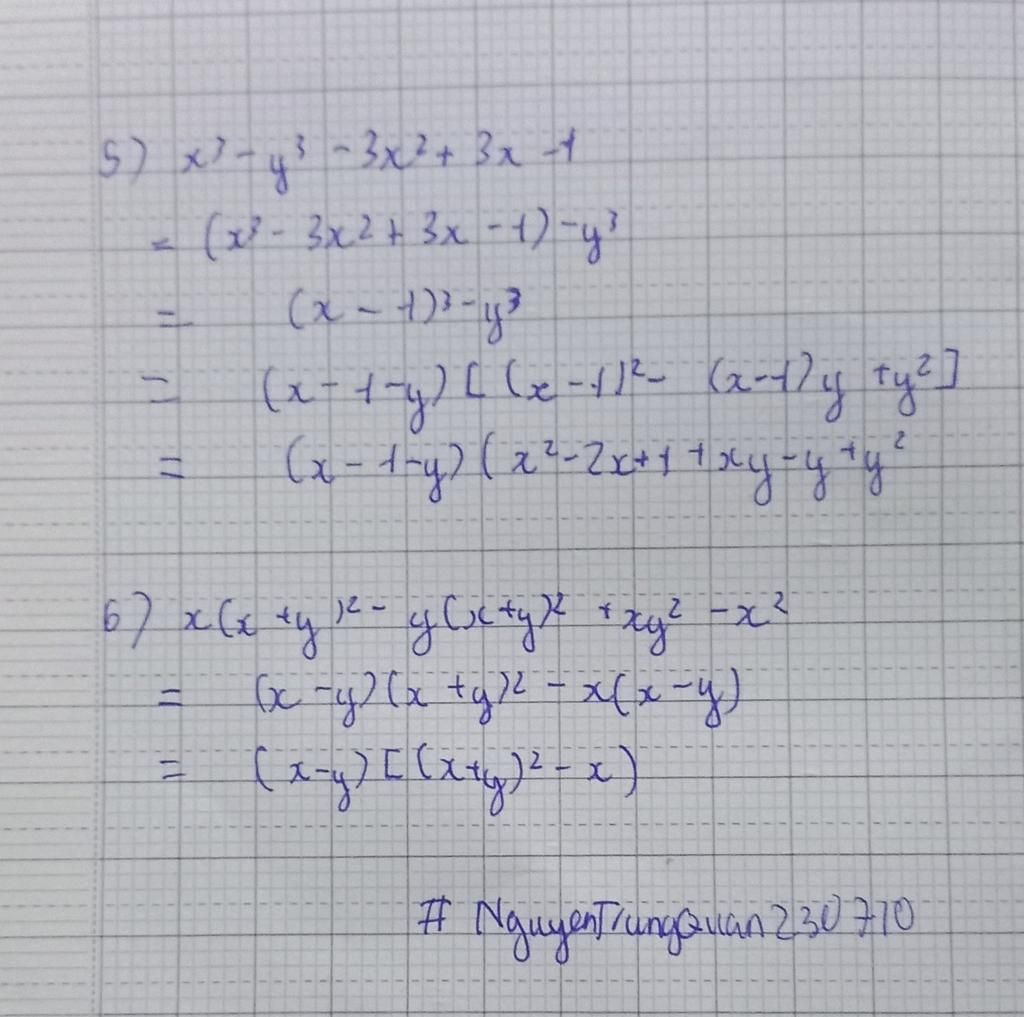 5) x³ - y³ - 3x² + 3x - 1
= (x³ - 3x2 + 3x - 1) - y³
= (x - 1)³ - y³
= (x - 1 - y) [ (x - 1)² - (x - 1) y + y² ]
= (x - 1 - y) ( x² - 2x + 1 + xy - y + y²
6) x(x + y)² - y(x + y)² + xy² - x²
= (x - y) (x + y)² - x(x - y)
= (x - y) [ (x + y)² - x )
# NguyenTrungQuan230710